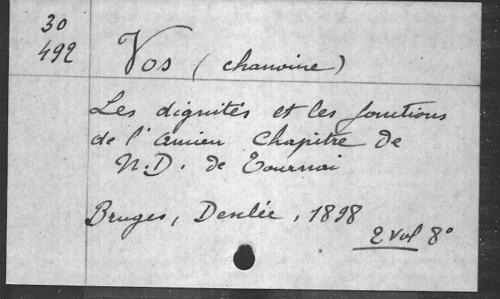 30
492
Vos (chanoine)
Les dignités et les fonctions
de l'ancien Chapitre de
N.D. de Tournai
Bruges, Desclée, 1898
2 vol 8°